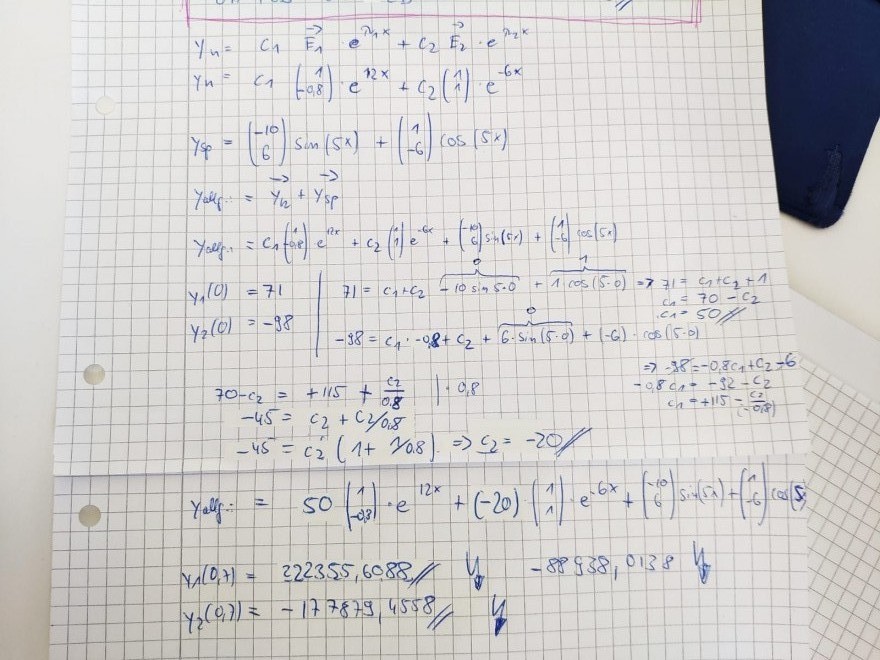 y_h = c1 E1→ · e^λ1x + c2 E2→ · e^λ2x
y_h = c1 (1 / -0,8) · e^12x + c2 (1 / 1) · e^-6x
y_sp = (-10 / 6) sin(5x) + (1 / -6) cos(5x)
y_allg. = y_h→ + y_sp→
y_allg. = c1 (1 / -0,8) e^12x + c2 (1 / 1) e^-6x + (-10 / 6) sin(5x) + (1 / -6) cos(5x)
0 1
y1(0) = 71 | 71 = c1 + c2 - 10 sin 5·0 + 1 cos(5·0) => 71 = c1 + c2 + 1
c1 = 70 - c2
c1 = 50 //
0
y2(0) = -98 | -98 = c1 · -0,8 + c2 + 6·sin(5·0) + (-6) · cos(5·0)
=> -98 = -0,8c1 + c2 - 6
-0,8 c1 = -92 - c2
c1 = +115 - c2/(-0,8)
70 - c2 = +115 + c2/0,8 | · 0,8
-45 = c2 + c2/0,8
-45 = c2 (1 + 1/0,8) => c2 = -20 //
y_allg. = 50 (1 / -0,8) · e^12x + (-20) (1 / 1) · e^-6x + (-10 / 6) sin(5x) + (1 / -6) cos(5
y1(0,7) = 222355,6088 // -88938,0138
y2(0,7) = -177879,4558 //